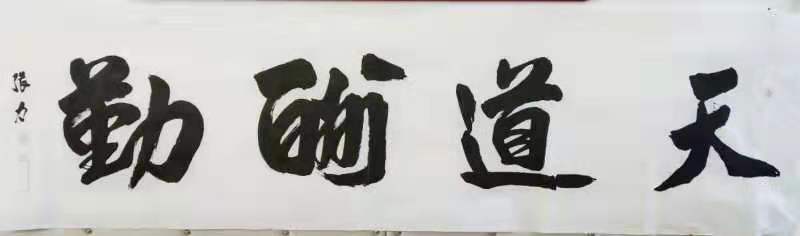 天道酬勤
張力